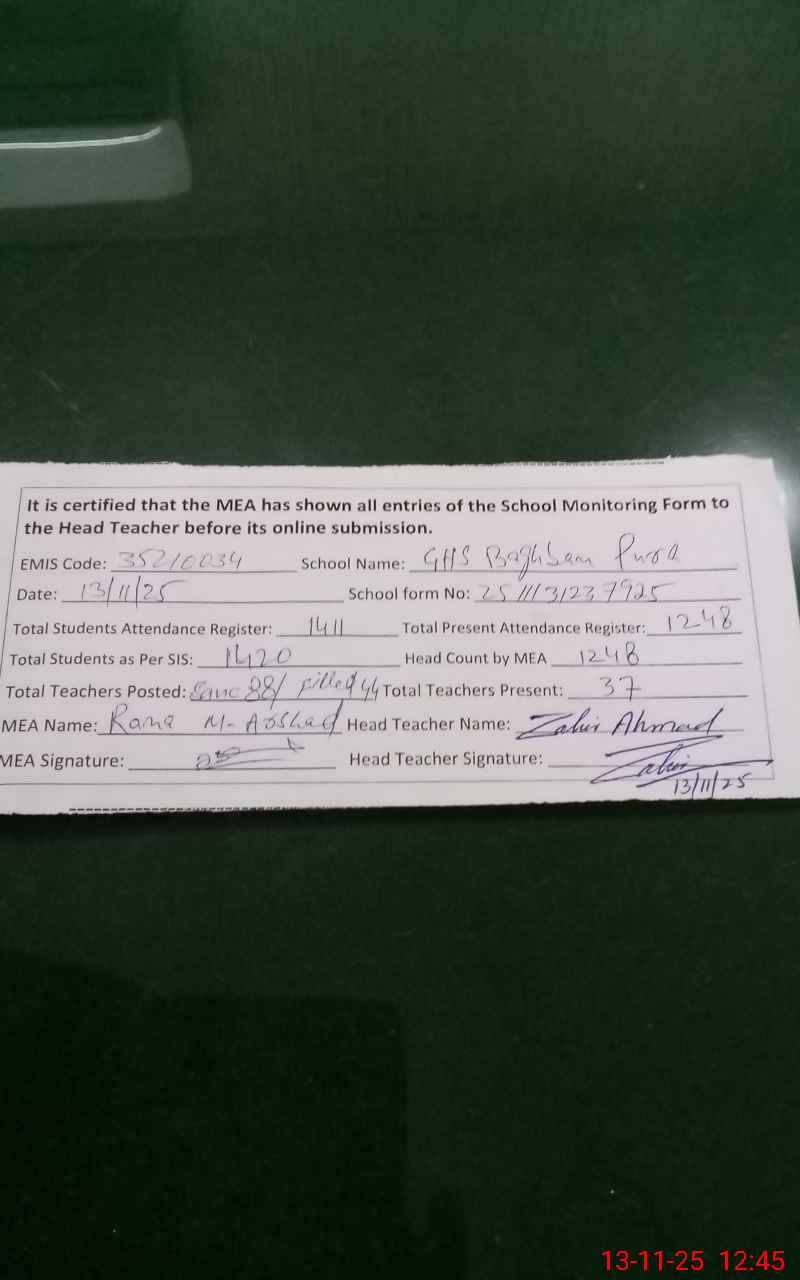 It is certified that the MEA has shown all entries of the School Monitoring Form to
the Head Teacher before its online submission.
EMIS Code: 35210034 School Name: GHS Baghban Pura
Date: 13/11/25 School form No: 2511131237925
Total Students Attendance Register: 1411 Total Present Attendance Register: 1248
Total Students as Per SIS: 1420 Head Count by MEA 1248
Total Teachers Posted: Sanc 88/ filled 44 Total Teachers Present: 37
MEA Name: Rana M. Arshad Head Teacher Name: Zahir Ahmad
MEA Signature: Head Teacher Signature: Zahir
13/11/25
13-11-25 12:45